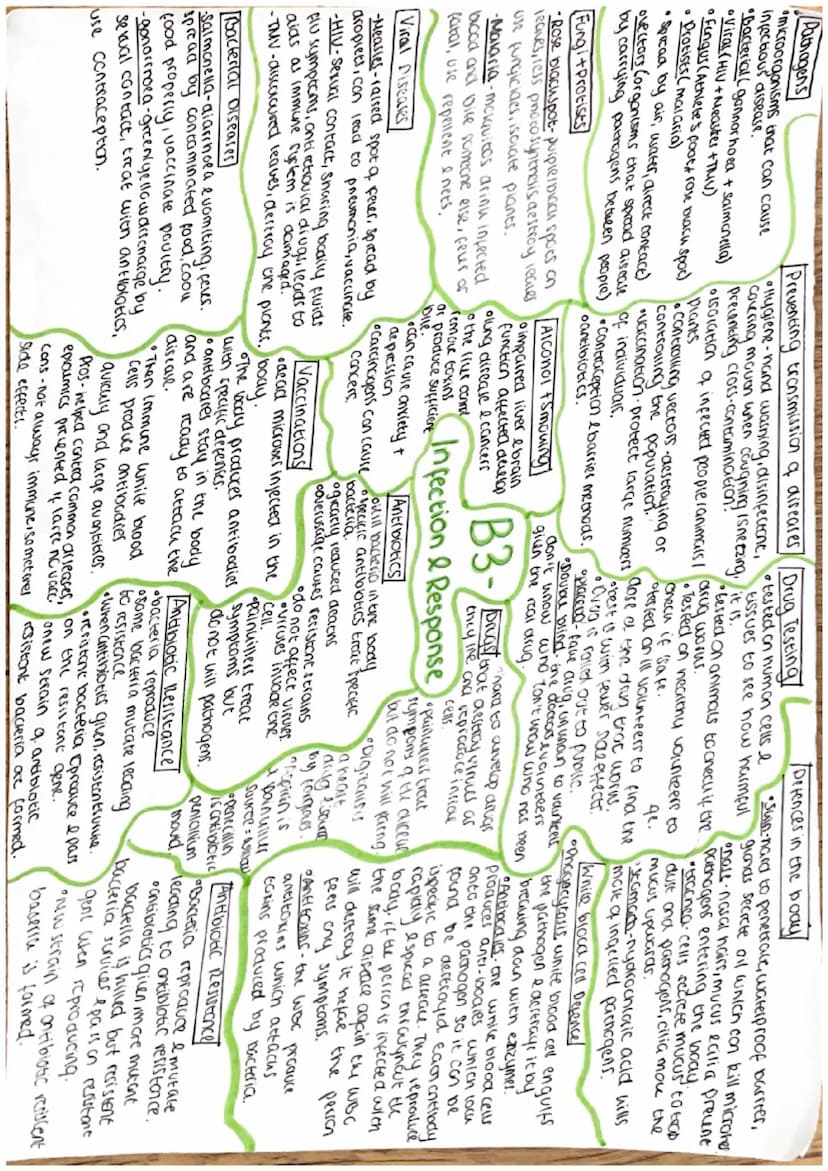 Pathogens
•microorganisms that can cause
infectious disease.
•Bacterial (gonnorhoea + salmonella)
•Viral (HIV + Measles + TMV)
•Fungus (Athlete's foot + rose black spot)
•Protists (malaria)
•Spread by air, water, direct contact)
•Vectors (organisms that spread disease
by carrying pathogens between people)
Fungi + Protists
•Rose blackspot- purple/black spots on
leaves, less photosynthesis, destroy leaves
use fungicides, isolate plants.
•Malaria - mosquitos drink infected
blood and bite someone else, fever or
fatal, use repellent & nets.
Viral Diseases
•Measles - raised spot & fever, spread by
droplets, can lead to pneumonia, vaccinate.
•HIV - sexual contact, sharing bodily fluids
flu symptoms, antiretroviral drugs, leads to
aids as immune system is damaged.
•TMV - discoloured leaves, destroy the plants.
Bacterial Diseases
•Salmonella - diarrhoea & vomiting, fever,
spread by contaminated food, cook
food properly, vaccinate poultry.
•gonorrhoea - green/yellow discharge by
sexual contact, treat with antibiotics,
use contraception.
Preventing transmission of diseases
•Hygiene - hand washing, disinfectant,
covering mouth when coughing/sneezing,
preventing cross-contamination.
•isolation of infected people/animals/
plants
•controlling vectors - destroying or
controlling the population.
•vaccination - protect large numbers
of individuals.
•contraception & barrier methods.
•antibiotics.
Alcohol + Smoking
•impaired liver & brain
function affected develop
•lung disease & cancers
•the liver can't
remove toxins
or produce sufficient
bile.
•can cause anxiety +
depression
•carcinogens can cause
cancer.
Vaccinations
•dead microbes injected in the
body.
•The body produces antibodies
with specific defenses.
•antibodies stay in the body
and are ready to attack the
disease.
•Then immune white blood
cells produce antibodies
quickly and large quantities.
Pros - helped control common diseases,
epidemics prevented if large no. vacc.
cons - not always immune, sometimes
side effects.
B3 -
Infection & Response
Drug Testing
•tested on human cells &
tissues to see how harmful
it is.
•tested on animals to check if the
drug works.
•Tested on healthy volunteers to
check if safe.
•tested on ill volunteers to find the
dose of the drug that works
best with fewer side effects.
•Drug is rolled out to public.
•placebo - fake drug, unknown to volunteers
•Double blind - the doctors & volunteers
don't know who has been
given the real drug.
Drugs
•hard to develop drugs
that destroy viruses as
they live and reproduce inside
cells.
•painkillers treat
symptoms of the disease
but do not kill pathog.
•Digitalis is
a heart
drug & source
by foxgloves.
•Aspirin is
a painkiller
source = willow
•penicillin
is antibiotic
penicillium
mould
Antibiotics
•kill bacteria in the body
•specific antibiotics treat specific
bacteria.
•greatly reduced deaths
•overusage causes resistant strains
•do not affect viruses
•viruses invade the
cell.
•painkillers treat
symptoms but
do not kill pathogens.
Antibiotic Resistance
•bacteria reproduce
•some bacteria mutate leading
to resistance.
•when antibiotics given, resistant survive.
•resistant bacteria reproduce & pass
on the resistant gene.
•new strain of antibiotic
resistant bacteria are formed.
Defences in the body
•Skin - hard to penetrate, waterproof barrier,
glands secrete oil which can kill microbes
•nose - nasal hairs, mucus & cilia prevent
pathogens entering the body.
•trachea - cells secrete mucus to trap
dust and pathogens, cilia move the
mucus upwards.
•stomach - hydrochloric acid kills
most of ingested pathogens.
White blood cell Disease
•Phagocytosis white blood cell engulfs
the pathogen & destroys it by
breaking down with enzymes.
•Antibodies - the white blood cells
produces anti-bodies which lock
onto the pathogen so it can be
found be destroyed. Each antibody
specific to a disease. They reproduce
rapidly & spread throughout the
body, if the person is infected with
the same disease again the WBC
will destroy it before the person
feels any symptoms.
•Antitoxins - the WBC produce
antitoxins which attacks
toxins produced by bacteria.
Antibiotic Resistance
•bacteria reproduce & mutate
leading to antibiotic resistance.
•antibiotics given more mutant
bacteria is killed but resistant
bacteria survives & pass on resistant
gene when reproducing.
•new strain of antibiotic resistant
bacteria is formed.